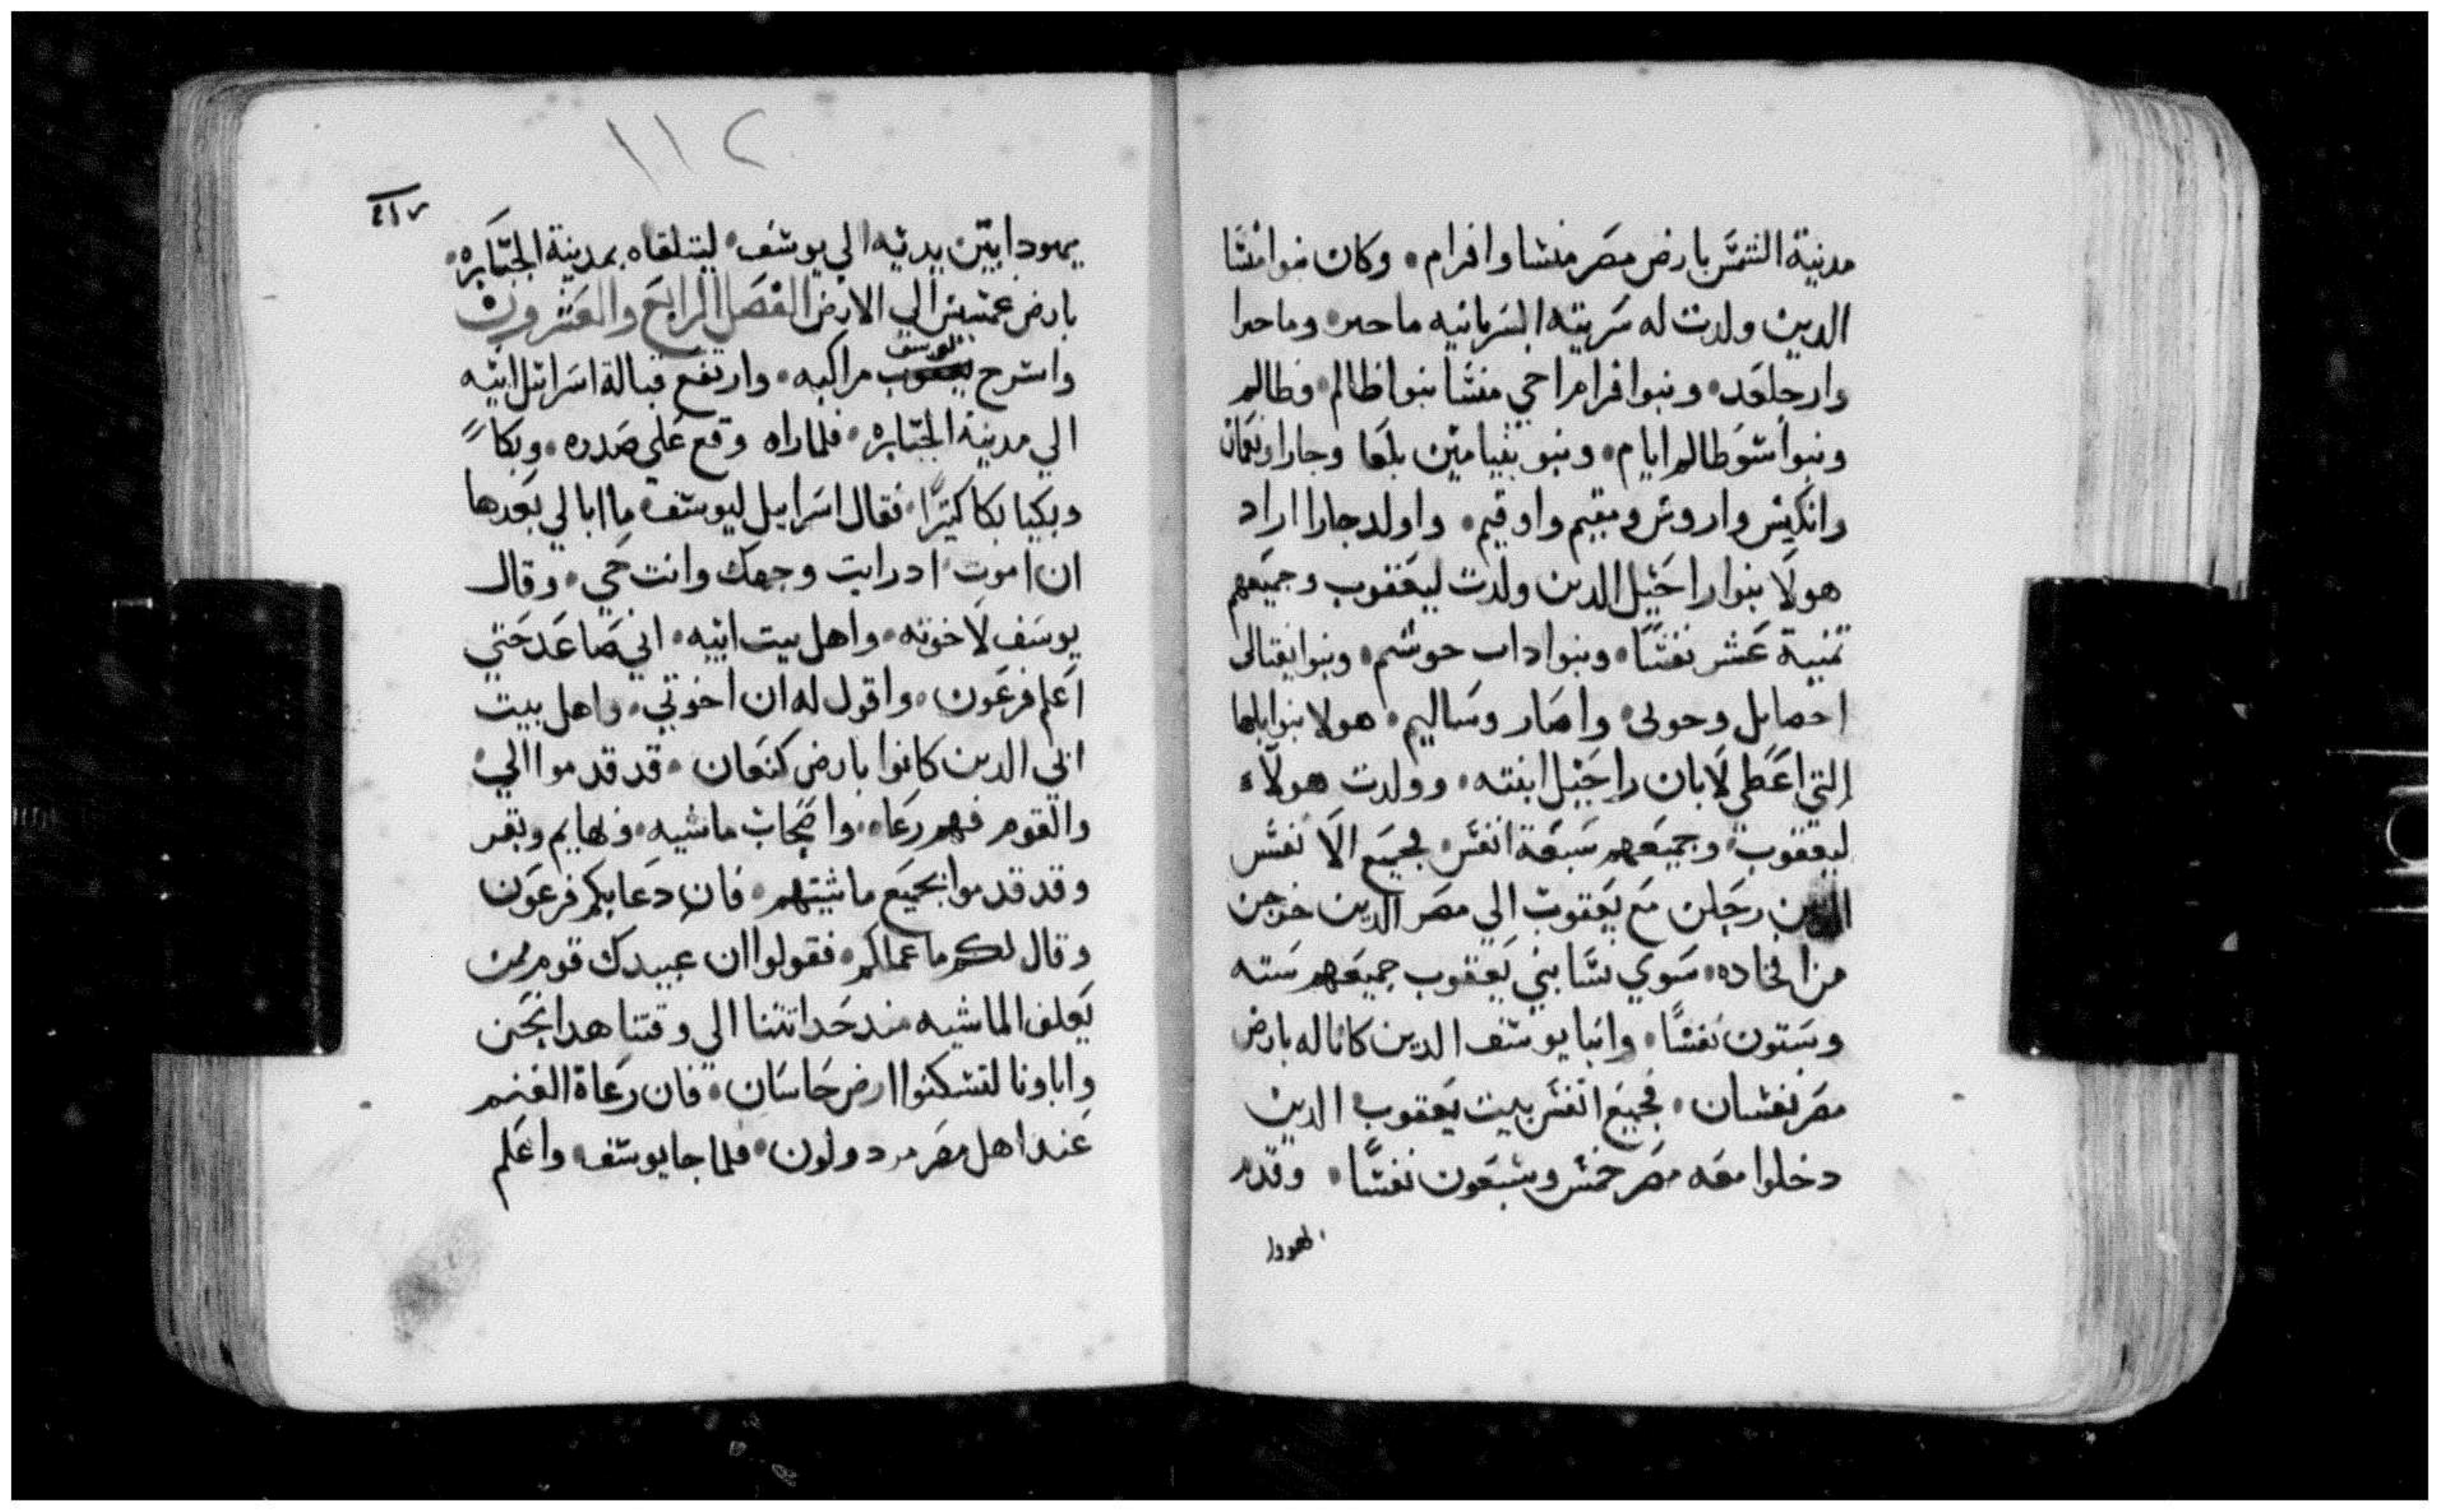 مدينة الشمس بارض مصر منشا وافرام • وكان بنوا منشا
الدين ولدت له سريته السريانيه ماحير • وماحيرا
وارجلعد • وبنوا فرام اخي منشا بنوا ظالم • وطالم
وبنوا شوطالم ايام • وبنو بنيامين بلعا وجارا ونعمان
وانكيش واروش ومقيم واوقيم • واولد جارا اراد
هولا بنوا راحيل الدين ولدت ليعقوب وجميعهم
ثمنية عشر نفسًا • وبنوا دان حوشم • وبنوا نفتالى
احصايل وحونى • واصار وساليم • هولا بنوا بلها
التي اعطى لابان راحيل ابنته • وولدت هولاء
ليعقوب • وجميعهم سبعة انفس • فجميع الانفس
الدين دخلن مع يعقوب الي مصر الدين خرجن
من افخاده • سوي نسا بني يعقوب جميعهم سته
وستون نفسًا • وابنا يوسف الدين كانا له بارض
مصر نفسان • فجميع انفس بيت يعقوب الدين
دخلوا معه مصر خمس وسبعون نفسًا • وقدم
يهودا
١١٢
٢١٧
يهودا بين يديه الي يوسف • ليتلقاه بمدينة الجبابره •
بارض عمسيس الي الارض الفصل الرابع والعشرون
واسرج يعقوب يوسف مراكبه • وارتفع قبالة اسرائيل ابيه
الي مدينة الجبابره • فلما راه وقع على صدره • وبكا
وبكيا بكا كثيرًا • فقال اسرايل ليوسف • ما ابالي بعدها
ان اموت اد رايت وجهك وانت حي • وقال
يوسف لاخوته • واهل بيت ابيه • اني صاعد حتي
اعلم فرعون • واقول له ان اخوتي • واهل بيت
ابي الدين كانوا بارض كنعان • قد قدموا الي
والقوم فهم رعاه • واصحاب ماشيه • وبهايم وبقر
وقد قدموا بجميع ماشيتهم • فان دعا بكم فرعون
وقال لكم ما عملكم • فقولوا ان عبيدك قوم ممن
يعلف الماشيه مند حداثتنا الي وقتنا هدا نحن
واباونا لتسكنوا ارض جاسان • فان رعاة الغنم
عند اهل مصر مردولون • فلما جا يوسف • واعلم